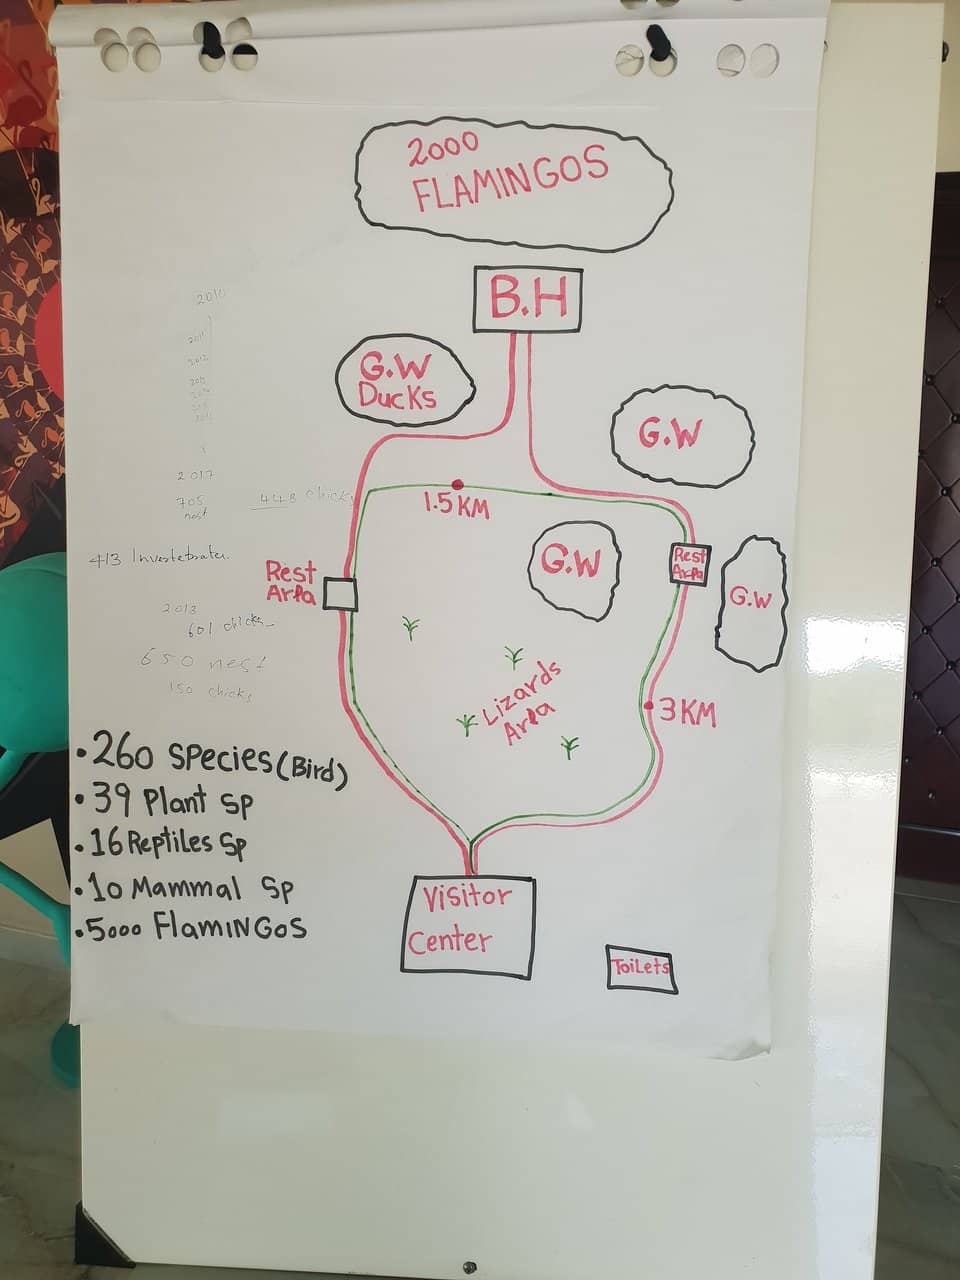 2000
FLAMINGOS
B.H
G.W
Ducks
G.W
1.5 KM
G.W
Rest
Area
Rest
Area
G.W
Lizards
Area
3 KM
2010
2011
2012
2017
705
nest
448 chicks
413 Invertebrates.
2013
601 chicks
650 nest
150 chicks
• 260 species (Bird)
• 39 Plant sp
• 16 Reptiles sp
• 10 Mammal sp
• 5000 FlamINGOS
Visitor
Center
ToiLets